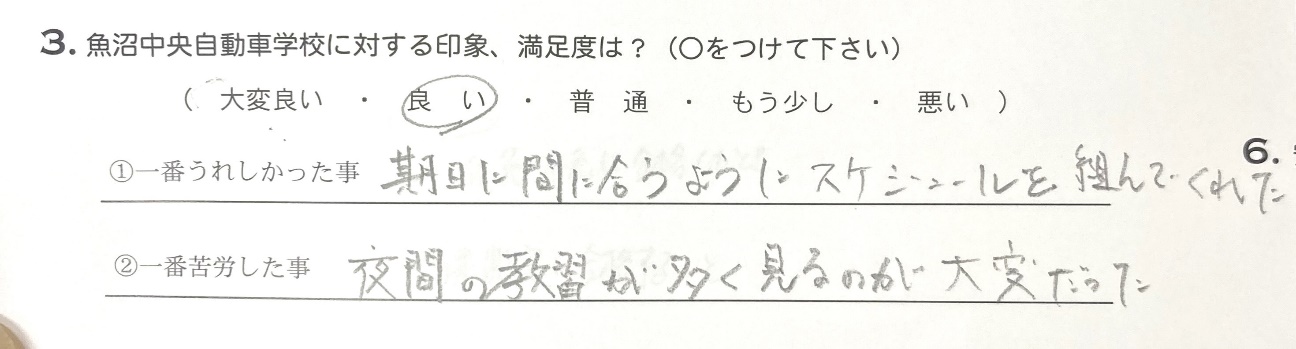 3. 魚沼中央自動車学校に対する印象、満足度は？（○をつけて下さい）
（ 大変良い ・ 良 い ・ 普 通 ・ もう少し ・ 悪い ）
①一番うれしかった事 期日に間に合うようにスケジュールを組んでくれた
6.
②一番苦労した事 夜間の教習が多く見るのが大変だった